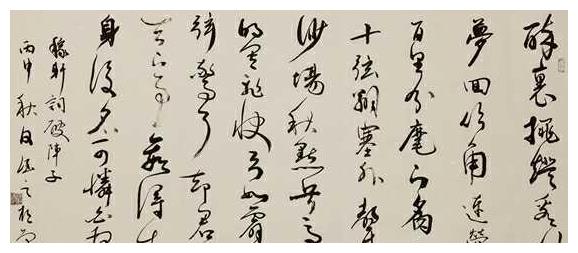 醉裏挑燈看
夢回吹角連營
百里分麾下炙
十弦翻塞外聲
沙場秋點兵馬
的盧飛快弓如霹
弦驚了卻君
天下事贏得生
身後名可憐白髮
稼軒詞破陣子
丙申秋月